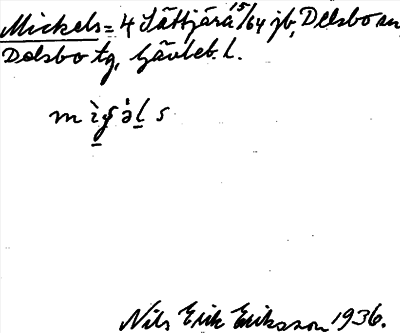 Mickels = 4 Sättjära 15/64 jb, Delsbo sn,
Delsbo tg, Gävleb. l.
m ì g ə l s
Nils Erik Eriksson 1936.